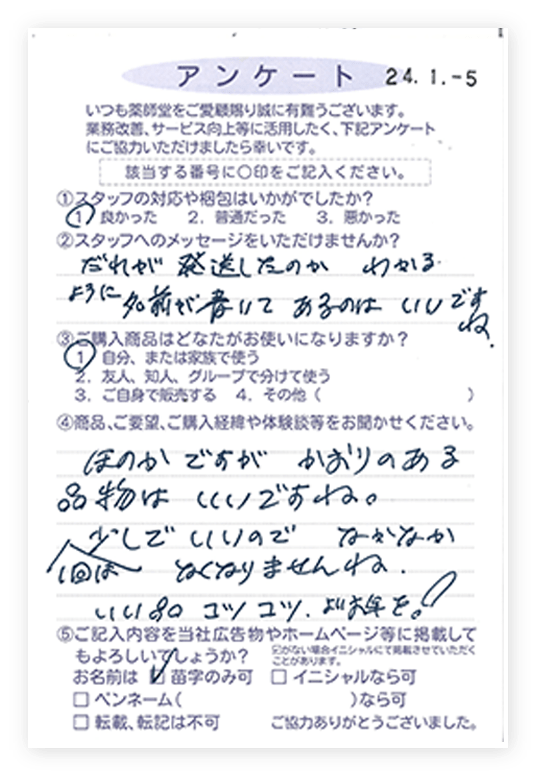 アンケート 24.1.-5
いつも薬師堂をご愛顧賜り誠に有難うございます。
業務改善、サービス向上等に活用したく、下記アンケート
にご協力いただけましたら幸いです。
該当する番号に○印をご記入ください。
①スタッフの対応や梱包はいかがでしたか?
1. 良かった 2. 普通だった 3. 悪かった
②スタッフへのメッセージをいただけませんか?
だれが 発送したのか わかる
ように 名前が書いて あるのは いいです
ね.
③ご購入商品はどなたがお使いになりますか?
1. 自分、または家族で使う
2. 友人、知人、グループで分けて使う
3. ご自身で販売する 4. その他( )
④商品、ご要望、ご購入経緯や体験談等をお聞かせください。
ほのかですが かおりのある
品物は いいですね。
少しで いいので なかなか
1回は なくなりませんね.
いい品 コツコツ. よいお年を。!
⑤ご記入内容を当社広告物やホームページ等に掲載して
もよろしいでしょうか?
☑がない場合イニシャルにて掲載させていただく
ことがあります。
お名前は ☑ 苗字のみ可 □ イニシャルなら可
□ ペンネーム( )なら可
□ 転載、転記は不可 ご協力ありがとうございました。